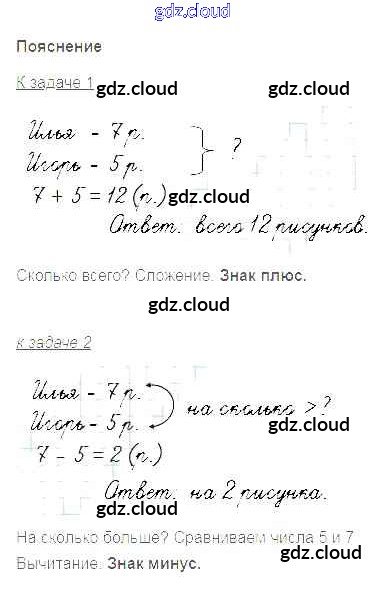 gdz.cloud
Пояснение
К задаче 1
gdz.cloud gdz.cloud
Илья - 7 р.
Игорь - 5 р. ?
7 + 5 = 12 (р.) gdz.cloud
Ответ: всего 12 рисунков.
gdz.cloud
Сколько всего? Сложение. Знак плюс.
gdz.cloud
к задаче 2
gdz.cloud
Илья - 7 р.
Игорь - 5 р. на сколько > ?
gdz.cloud
7 - 5 = 2 (р.)
Ответ: на 2 рисунка.
gdz.cloud
На сколько больше? Сравниваем числа 5 и 7
gdz.cloud
Вычитание. Знак минус.